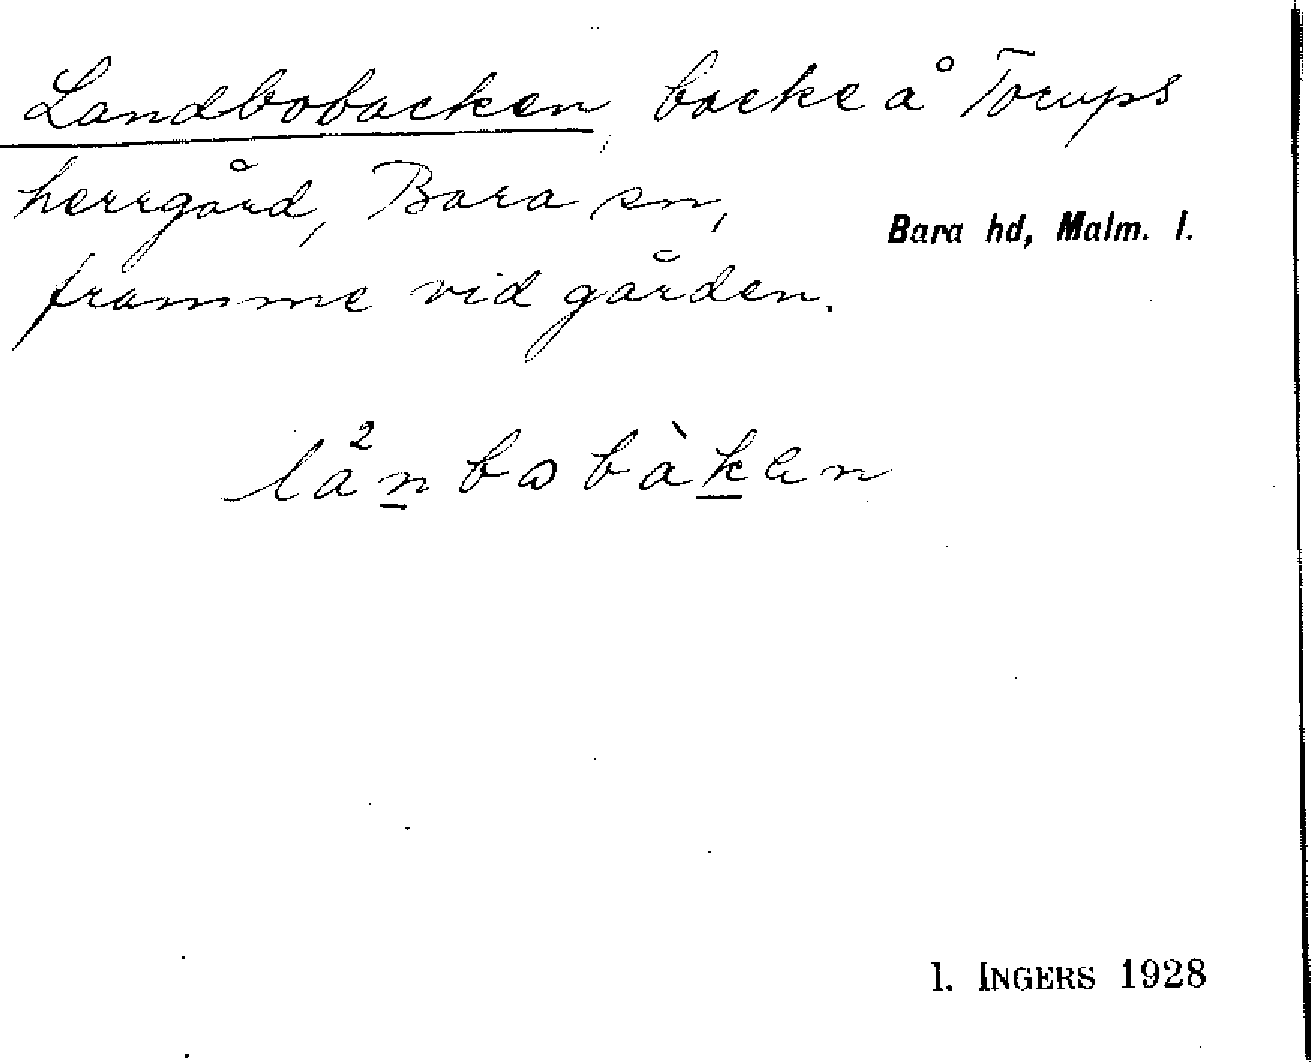 Landbobacken, backe å Torups
herrgård, Bara sn,
Bara hd, Malm. l.
framme vid gården.
I. INGERS 1928